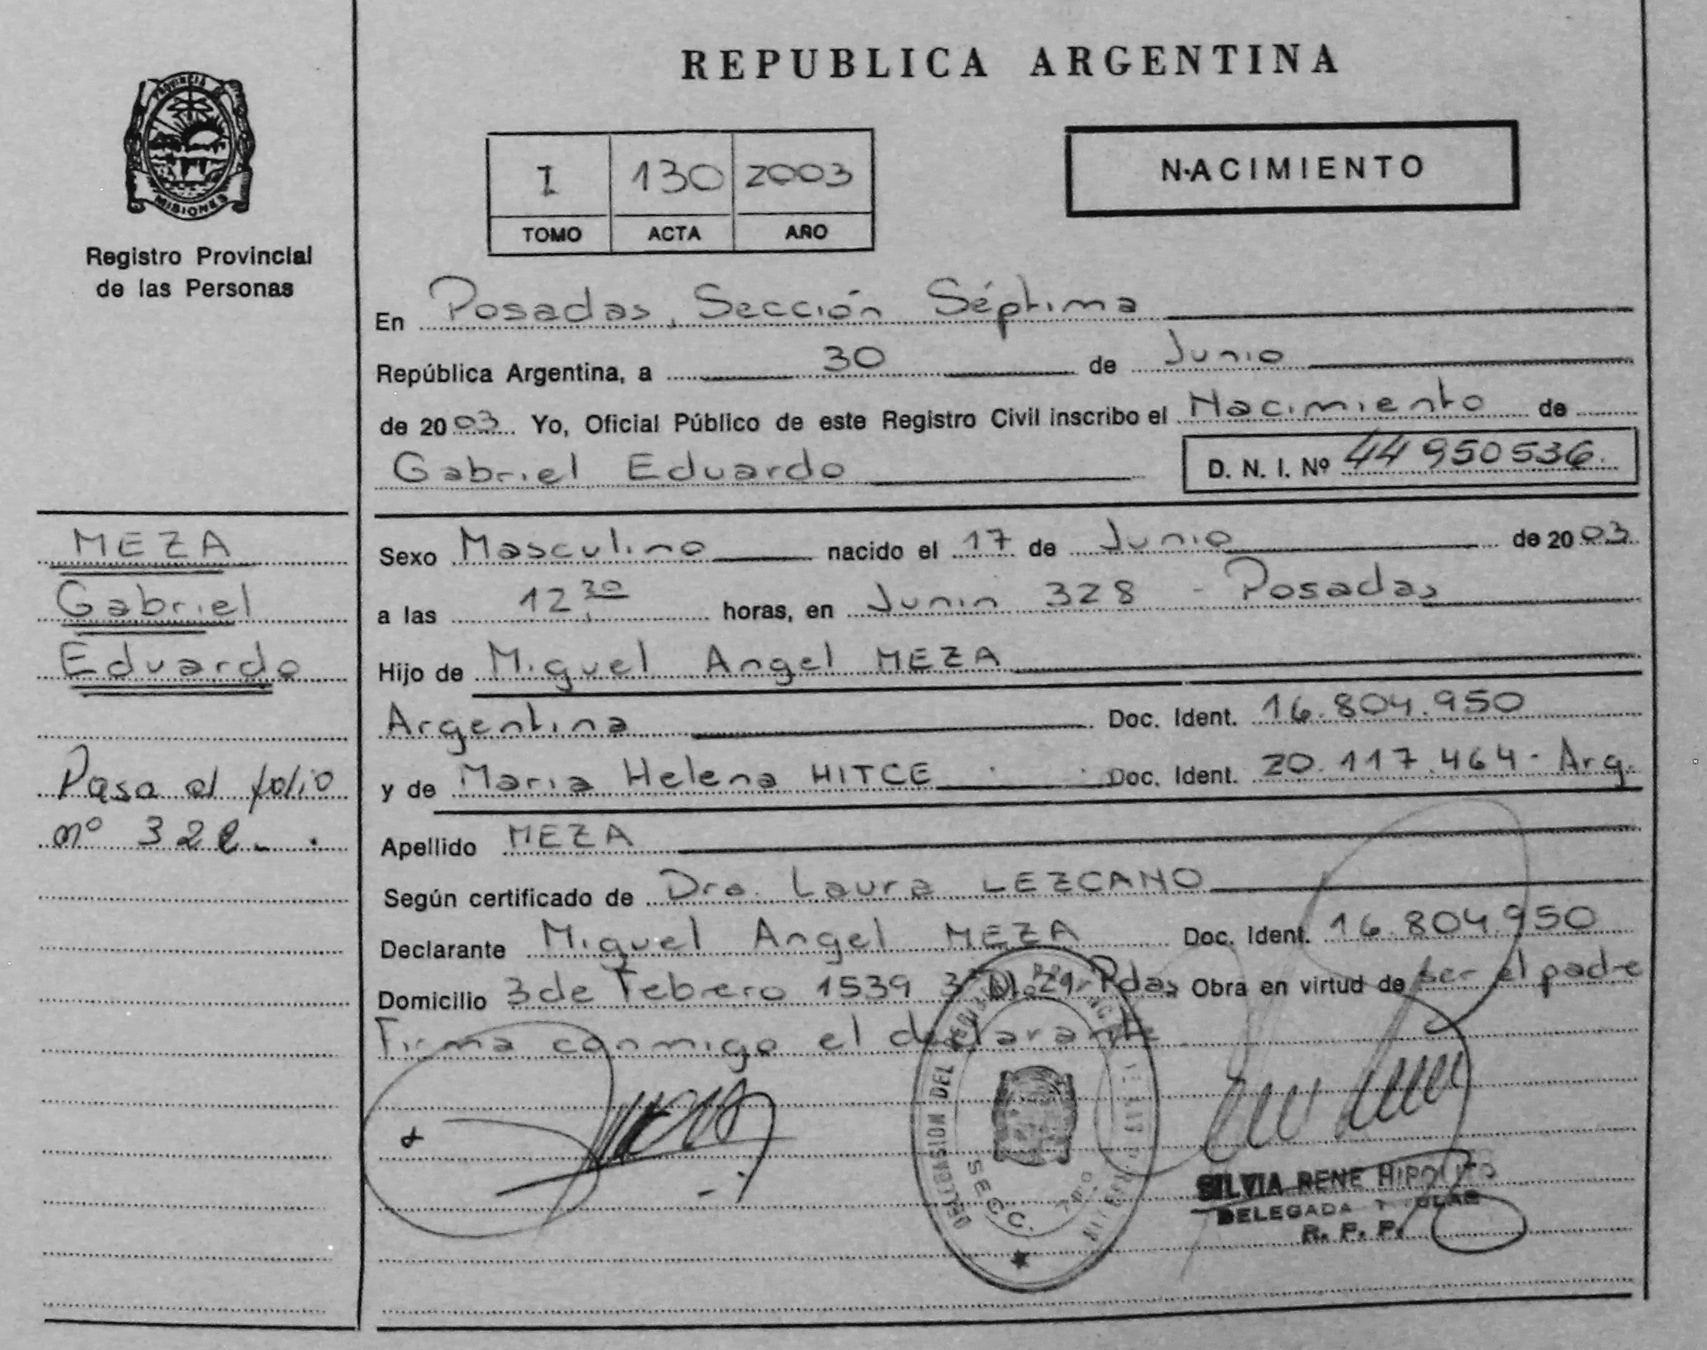 REPUBLICA ARGENTINA
PROVINCIA DE
MISIONES
Registro Provincial
de las Personas
I 130 2003
TOMO ACTA AÑO
NACIMIENTO
En Posadas, Sección Séptima
República Argentina, a 30 de Junio
de 2003 Yo, Oficial Público de este Registro Civil inscribo el Nacimiento de
Gabriel Eduardo D. N. I. Nº 44 950 536.
MEZA
Gabriel
Eduardo
Pasa al folio
nº 322.
Sexo Masculino nacido el 17 de Junio de 2003
a las 12 30 horas, en Junin 328 - Posadas
Hijo de Miguel Angel MEZA
Argentina Doc. Ident. 16.804.950
y de Maria Helena HITCE Doc. Ident. 20.117.464 - Arg.
Apellido MEZA
Según certificado de Dra. Laura LEZCANO
Declarante Miguel Angel MEZA Doc. Ident. 16.804.950
Domicilio 3 de Febrero 1539 Pdas Obra en virtud de ser el padre
Firma conmigo el declarante
DEL
SECC.
SILVIA RENE HIPOLITO
DELEGADA TITULAR
R. P. P.